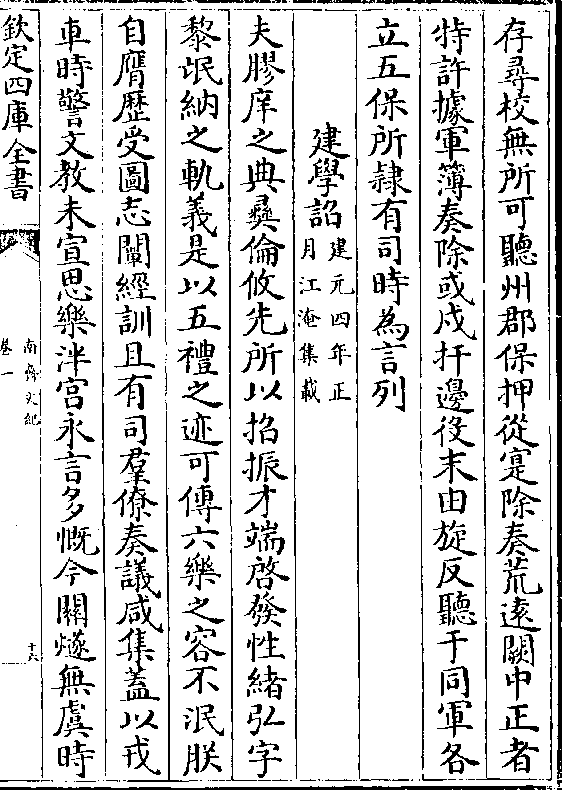 存尋校無所可聽州郡保押從寔除奏荒遠闕中正者
特許據軍簿奏除或戍扞邊役末由旋反聽于同軍各
立五保所隸有司時為言列
建學詔
建元四年正
月江淹集載
夫膠庠之典彞倫攸先所以招振才端啓發性緒弘字
黎氓納之軌義是以五禮之迹可傳六樂之容不泯朕
自膺歴受圖志闡經訓且有司羣僚奏議咸集蓋以戎
車時警文教未宣思樂泮宫永言多慨今關燧無虞時
欽定四庫全書
南齊文紀
卷一
十六